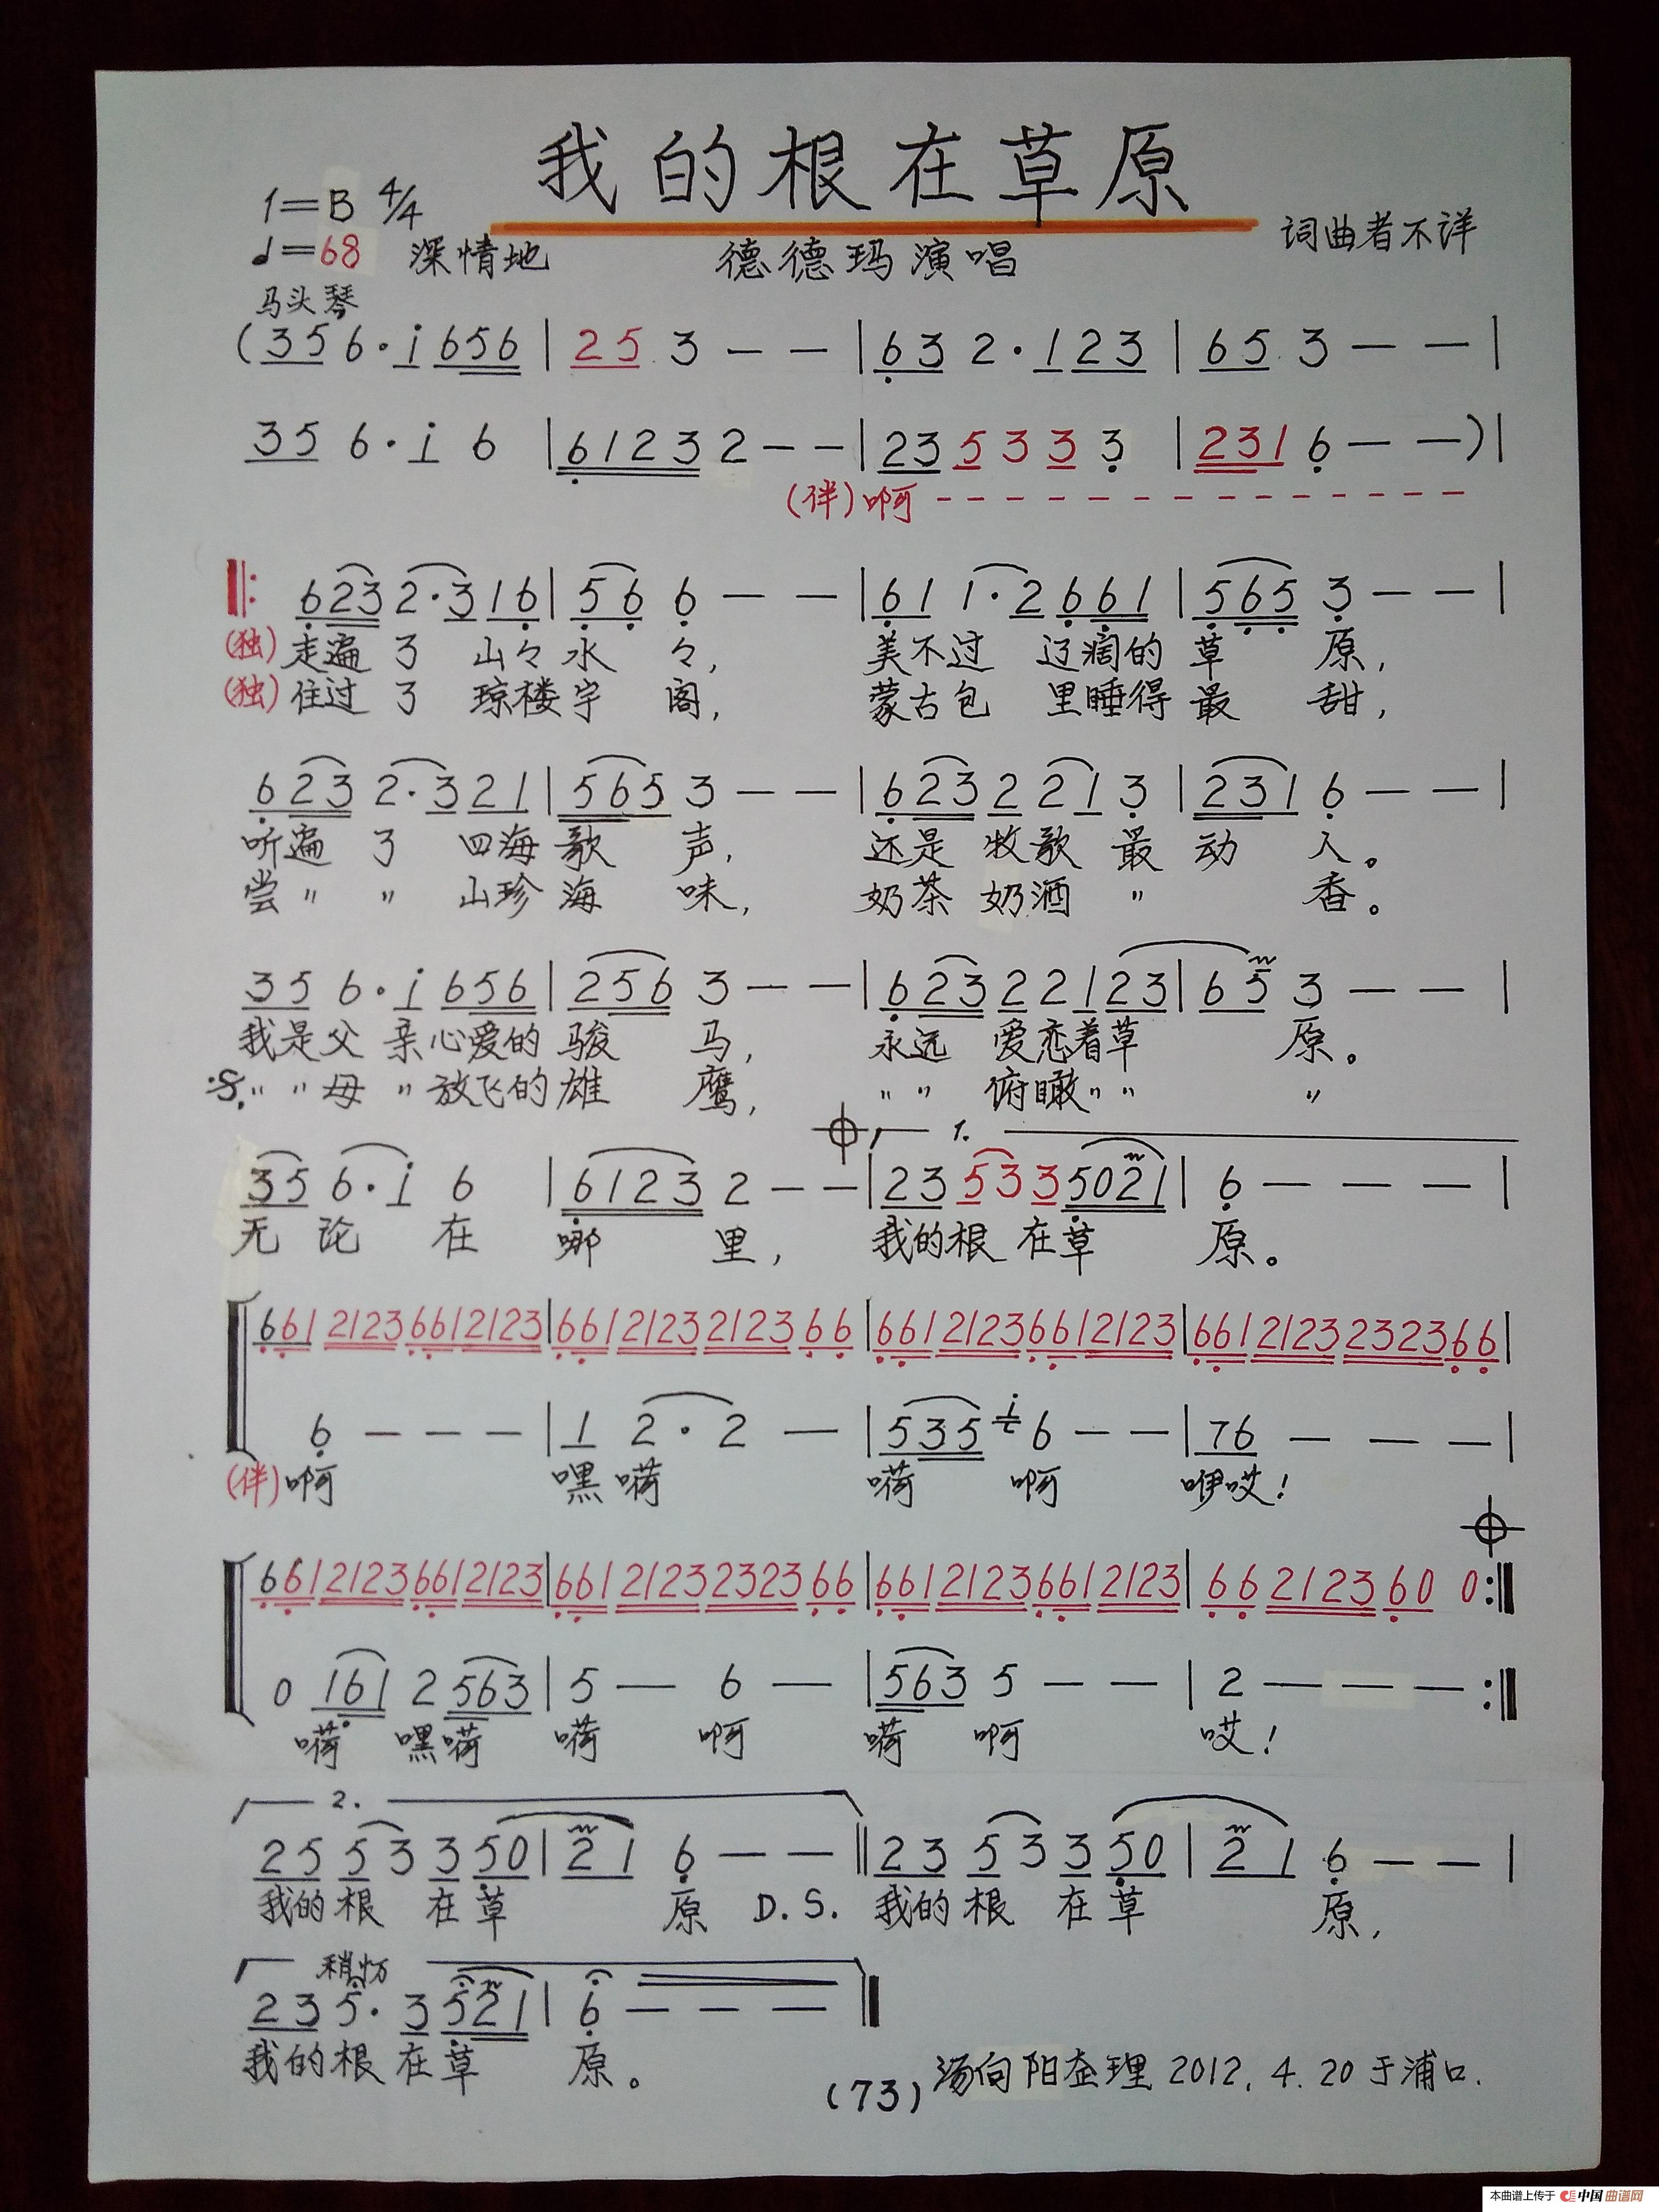 我的根在草原
1=B 4/4
♩=68 深情地 德德玛演唱 词曲者不详
马头琴
(35 6·i 656 | 25 3 — — | 63 2·1 23 | 65 3 — — |
35 6·i 6 | 6123 2 — — | 23 5 3 3 3 | 231 6 — —) |
(伴)啊 - - - - - - - - - - - - -
‖: 623 2·3 16 | 56 6 — — | 61 1·2 661 | 565 3 — — |
(独)走遍了 山々水 々, 美不过 辽阔的草 原,
(独)住过了 琼楼宇 阁, 蒙古包 里睡得最 甜,
623 2·3 21 | 565 3 — — | 623 2 21 3 | 231 6 — — |
听遍了 四海歌 声, 还是牧歌最动 人。
尝〃 〃 山珍海 味, 奶茶奶酒 〃 香。
35 6·i 656 | 256 3 — — | 623 2 2 1 23 | 65 3 — — |
我是父 亲心爱的骏 马, 永远 爱恋着草 原。
𝄋 〃 〃 母 〃 放飞的雄 鹰, 〃 〃 俯瞰〃 〃 〃
1.
35 6·i 6 | 6123 2 — — | 23 5 3 3 5021 | 6 — — — |
无论 在 哪 里, 我的根 在草 原。
661 2123 661 2123 | 661 2123 2123 66 | 661 2123 661 2123 | 661 2123 2323 66 |
6 — — — | 1 2·2 — | 535 i 6 — — | 76 — — — |
(伴)啊 嘿嗬 嗬 啊 咿哎!
661 2123 661 2123 | 661 2123 2323 66 | 661 2123 661 2123 | 66 2123 60 0 :‖
0 161 2 563 | 5 — 6 — | 563 5 — — | 2 — — — :‖
嗬 嘿嗬 嗬 啊 嗬 啊 哎!
2.
25 5 3 3 50 | 21 6 — — ‖ 23 5 3 3 50 | 21 6 — — |
我的根 在草 原 D.S. 我的根 在草 原,
稍忄万
23 5·3 521 | 6 — — — ‖
我的根 在草 原。
(73) 汤向阳奎理 2012.4.20于浦口.
本曲谱上传于 中国曲谱网